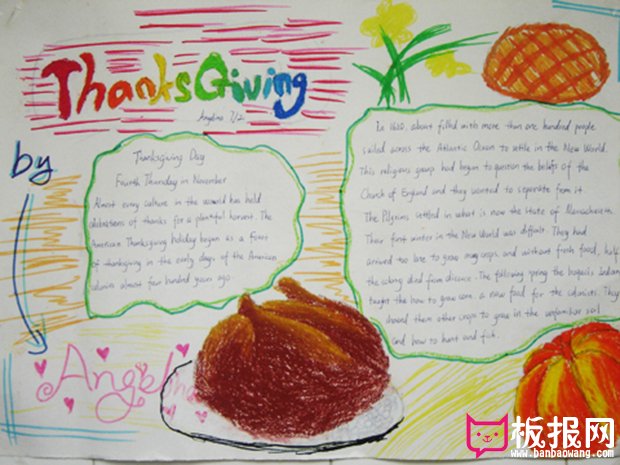 ThanksGiving
Angelina 7.2.
by
Angelina
Thanksgiving Day
Fourth Thursday in November
Almost every culture in the world has held
celebrations of thanks for a plentiful harvest. The
American Thanksgiving holiday began as a feast
of thanksgiving in the early days of the American
colonies almost four hundred years ago.
In 1620, a boat filled with more than one hundred people
sailed across the Atlantic Ocean to settle in the New World.
This religious group had begun to question the beliefs of the
Church of England and they wanted to separate from it.
The Pilgrims settled in what is now the state of Massachusetts.
Their first winter in the New World was difficult. They had
arrived too late to grow many crops, and without fresh food, half
the colony died from disease. The following spring the Iroquois Indians
taught them how to grow corn, a new food for the colonists. They
showed them other crops to grow in the unfamiliar soil
and how to hunt and fish.
板报网
www.banbaowang.com